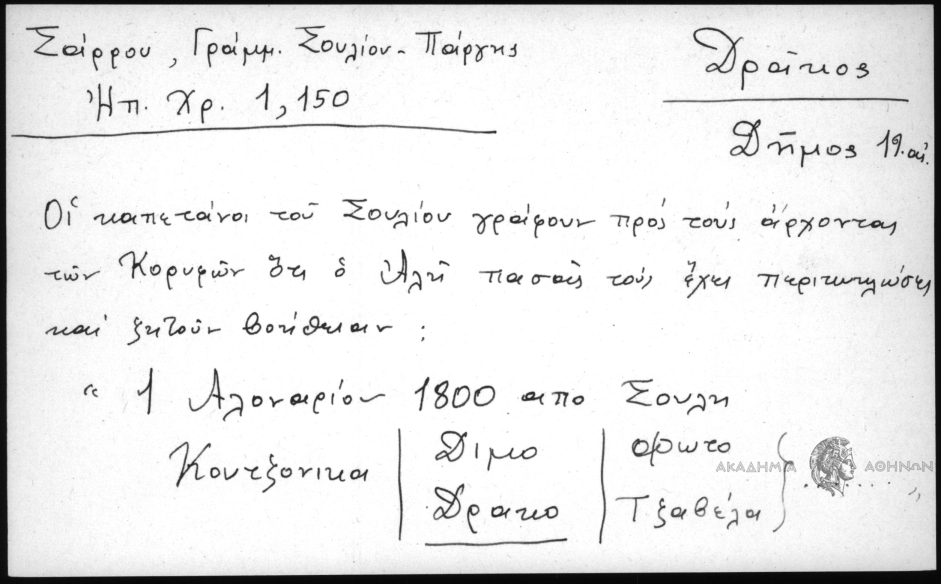 Σάρρου, Γράμμ. Σουλίου - Πάργης
Ἠπ. Χρ. 1, 150
Δράκος
Δῆμος 19. αἰ.
Οἱ καπετάνοι τοῦ Σουλίου γράφουν πρός τούς ἄρχοντας
τῶν Κορυφῶν ὅτι ὁ Ἀλῆ πασάς τούς ἔχει περικυκλώσει
καί ζητοῦν βοήθειαν :
" 1 Αλοναρίου 1800 απο Σουλη
Κουτζονικα | Διμο | Φωτο
Δρακο | Τζαβέλα } ..... "
ΑΚΑΔΗΜΙΑ ΑΘΗΝΩΝ